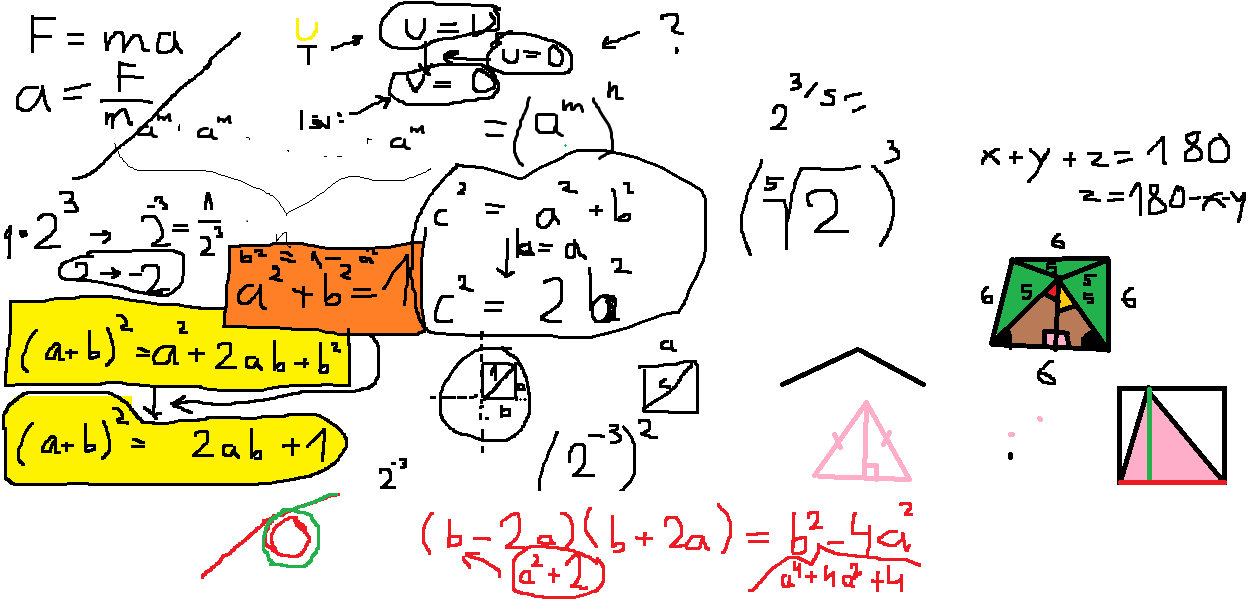 F = ma
a = F/m
U
T
U = 1
U = 0
V = 0
?
a^m · a^m · · · a^m = (a^m)^n
n
2^{3/5} =
(⁵√2)^3
x + y + z = 180
z = 180 - x - y
2^3 → 2^{-3} = 1/2^3
2 → -2
b² = 1 - a²
a² + b² = 1
c² = a² + b²
b = a
c² = 2b²
(a+b)² = a² + 2ab + b²
(a+b)² = 2ab + 1
6
5 5
6 5 5 6
6
1
b
a
c
(2^{-3})^2
2^{-3}
(b - 2a)(b + 2a) = b² - 4a²
a² + 2
a⁴ + 4a² + 4